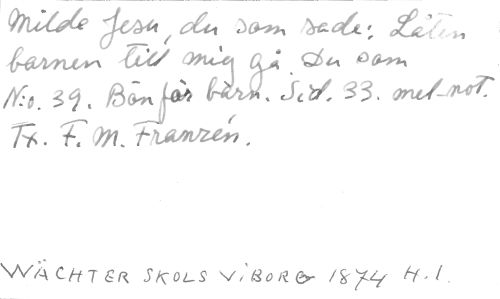 Milde Jesu, du som sade: Låten
barnen till mig gå. Du som
N:o. 39. Bön för barn. Sid. 33. mel-not.
Tx. F. M. Franzén.
WÄCHTER SKOLS VIBORG 1874 H.1.